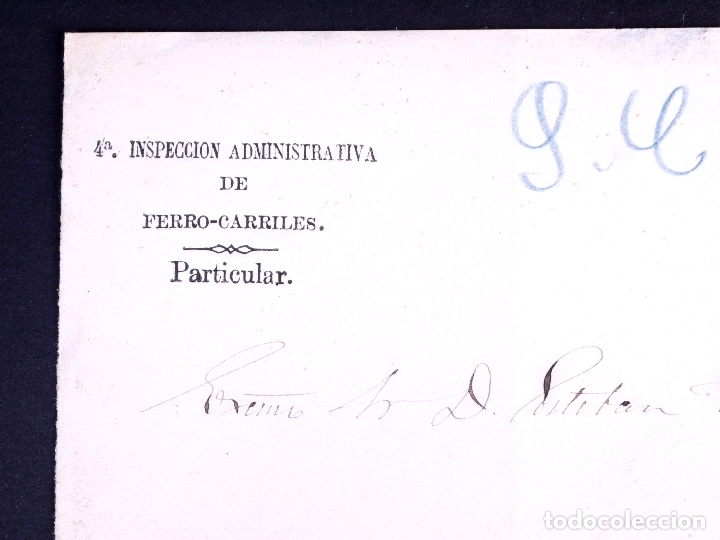 4ª. INSPECCION ADMINISTRATIVA
DE
FERRO-CARRILES.
Particular.
Excmo Sr D. Esteban
todocoleccion